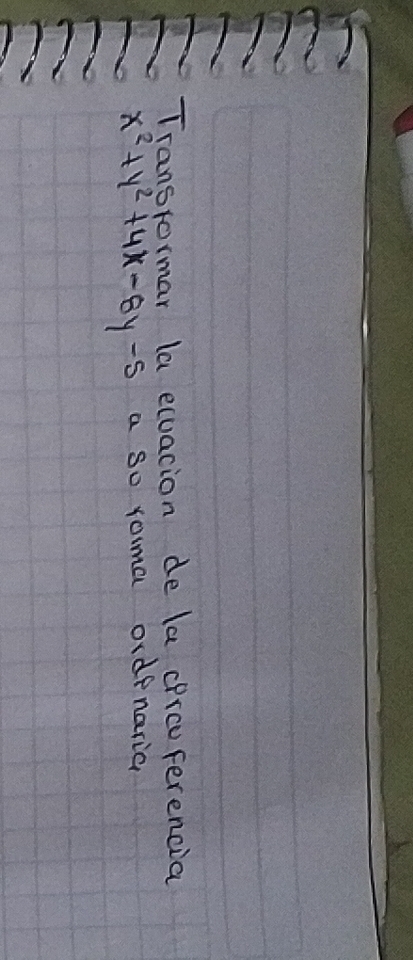 Transformar la ecuacion de la circuferencia
x²+y²+4x-8y-5 a su forma ordinaria